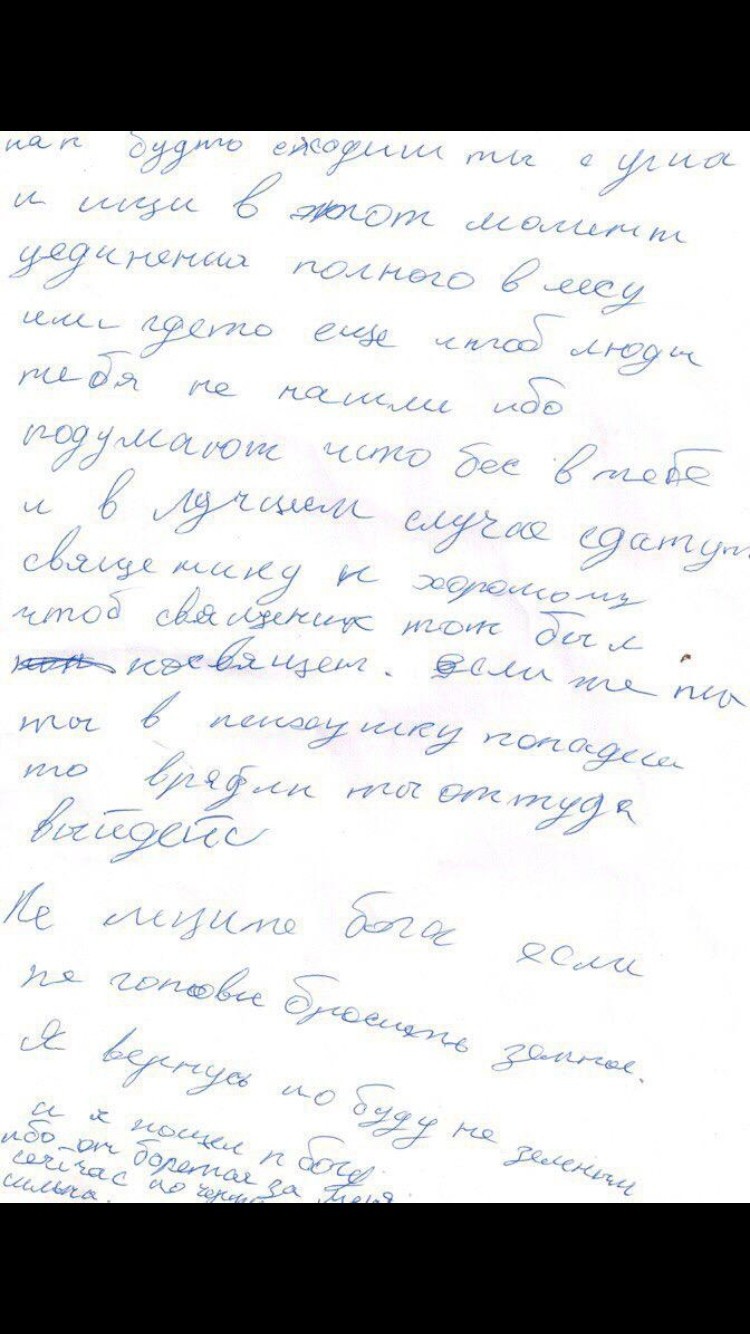 как будто сходиш ты с ума
и ищи в этот момент
уединения полного в лесу
или гдето еще чтоб люди
тебя не нашли ибо
подумают что бес в тебе
и в лучшем случае сдатут
священику к хоромому
чтоб священик тож был
посвящен. если же ты
ты в психушку попадеш
то врядли ты оттуда
выйдеш
Не ищите бога если
не готовы бросить земное.
Я вернусь но буду не земным
и я пошел к богу
ибо он борется за меня
сейчас но
сильна.